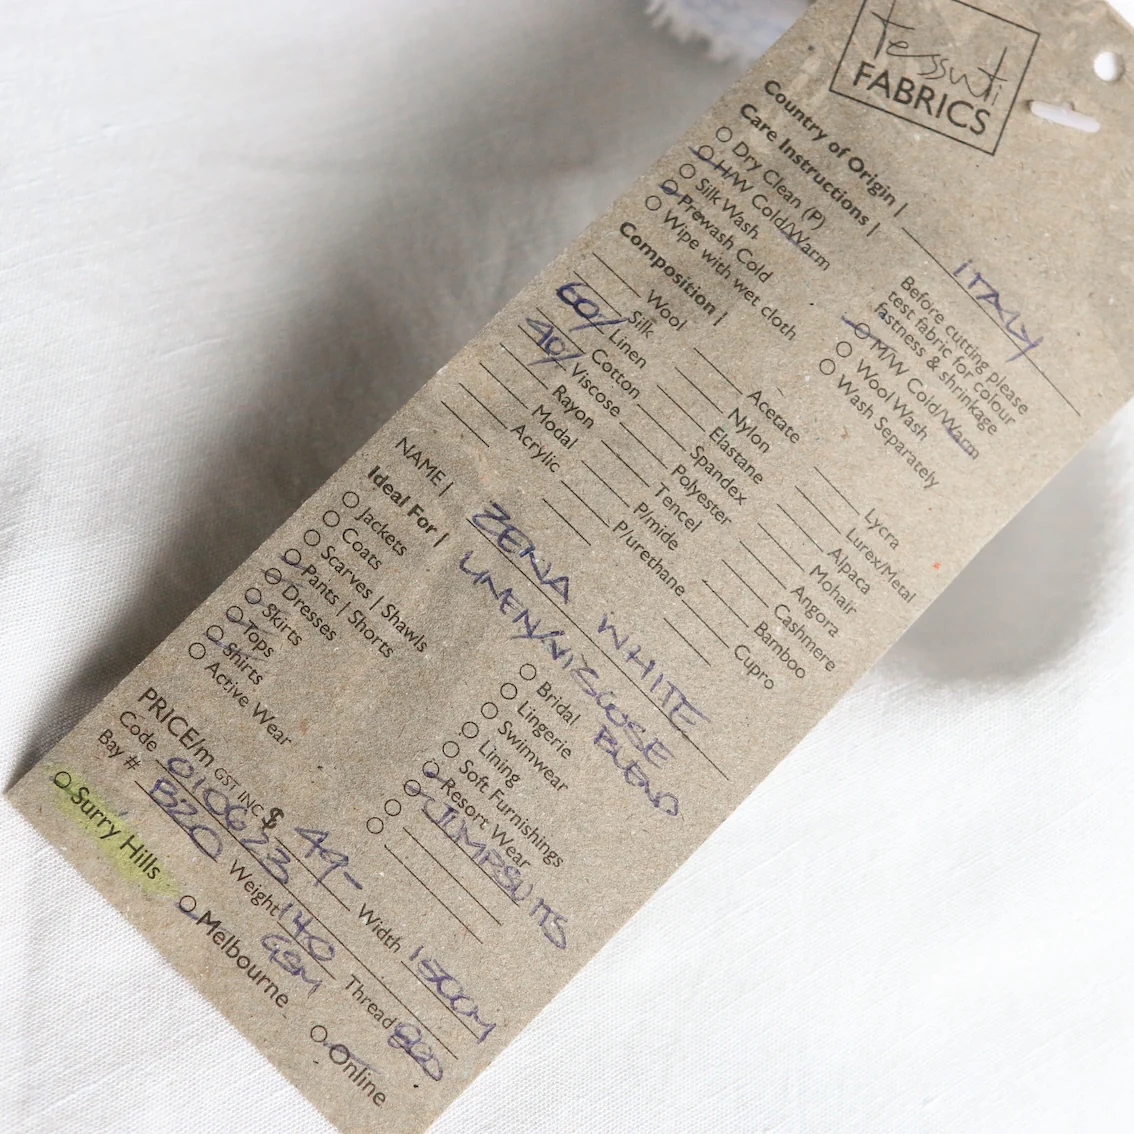 Tessuti
FABRICS
Country of Origin | ITALY
Care Instructions |
Dry Clean (P)
H/W Cold/Warm
Silk Wash
Prewash Cold
Wipe with wet cloth
Before cutting please
test fabric for colour
fastness & shrinkage
M/W Cold/Warm
Wool Wash
Wash Separately
Composition |
Wool
Silk
60% Linen
Cotton
40% Viscose
Rayon
Modal
Acrylic
Acetate
Nylon
Elastane
Spandex
Polyester
Tencel
P/mide
P/urethane
Lycra
Lurex/Metal
Alpaca
Mohair
Angora
Cashmere
Bamboo
Cupro
NAME | ZENA WHITE
LINEN/VISCOSE
BLEND
Ideal For |
Jackets
Coats
Scarves | Shawls
Pants | Shorts
Dresses
Skirts
Tops
Shirts
Active Wear
Bridal
Lingerie
Swimwear
Lining
Soft Furnishings
Resort Wear
JUMPSUITS
PRICE/m GST INC $ 49-
Code 010623 Width 150CM
Bay # B20 Weight 140 GSM Thread
Surry Hills
Melbourne
Online